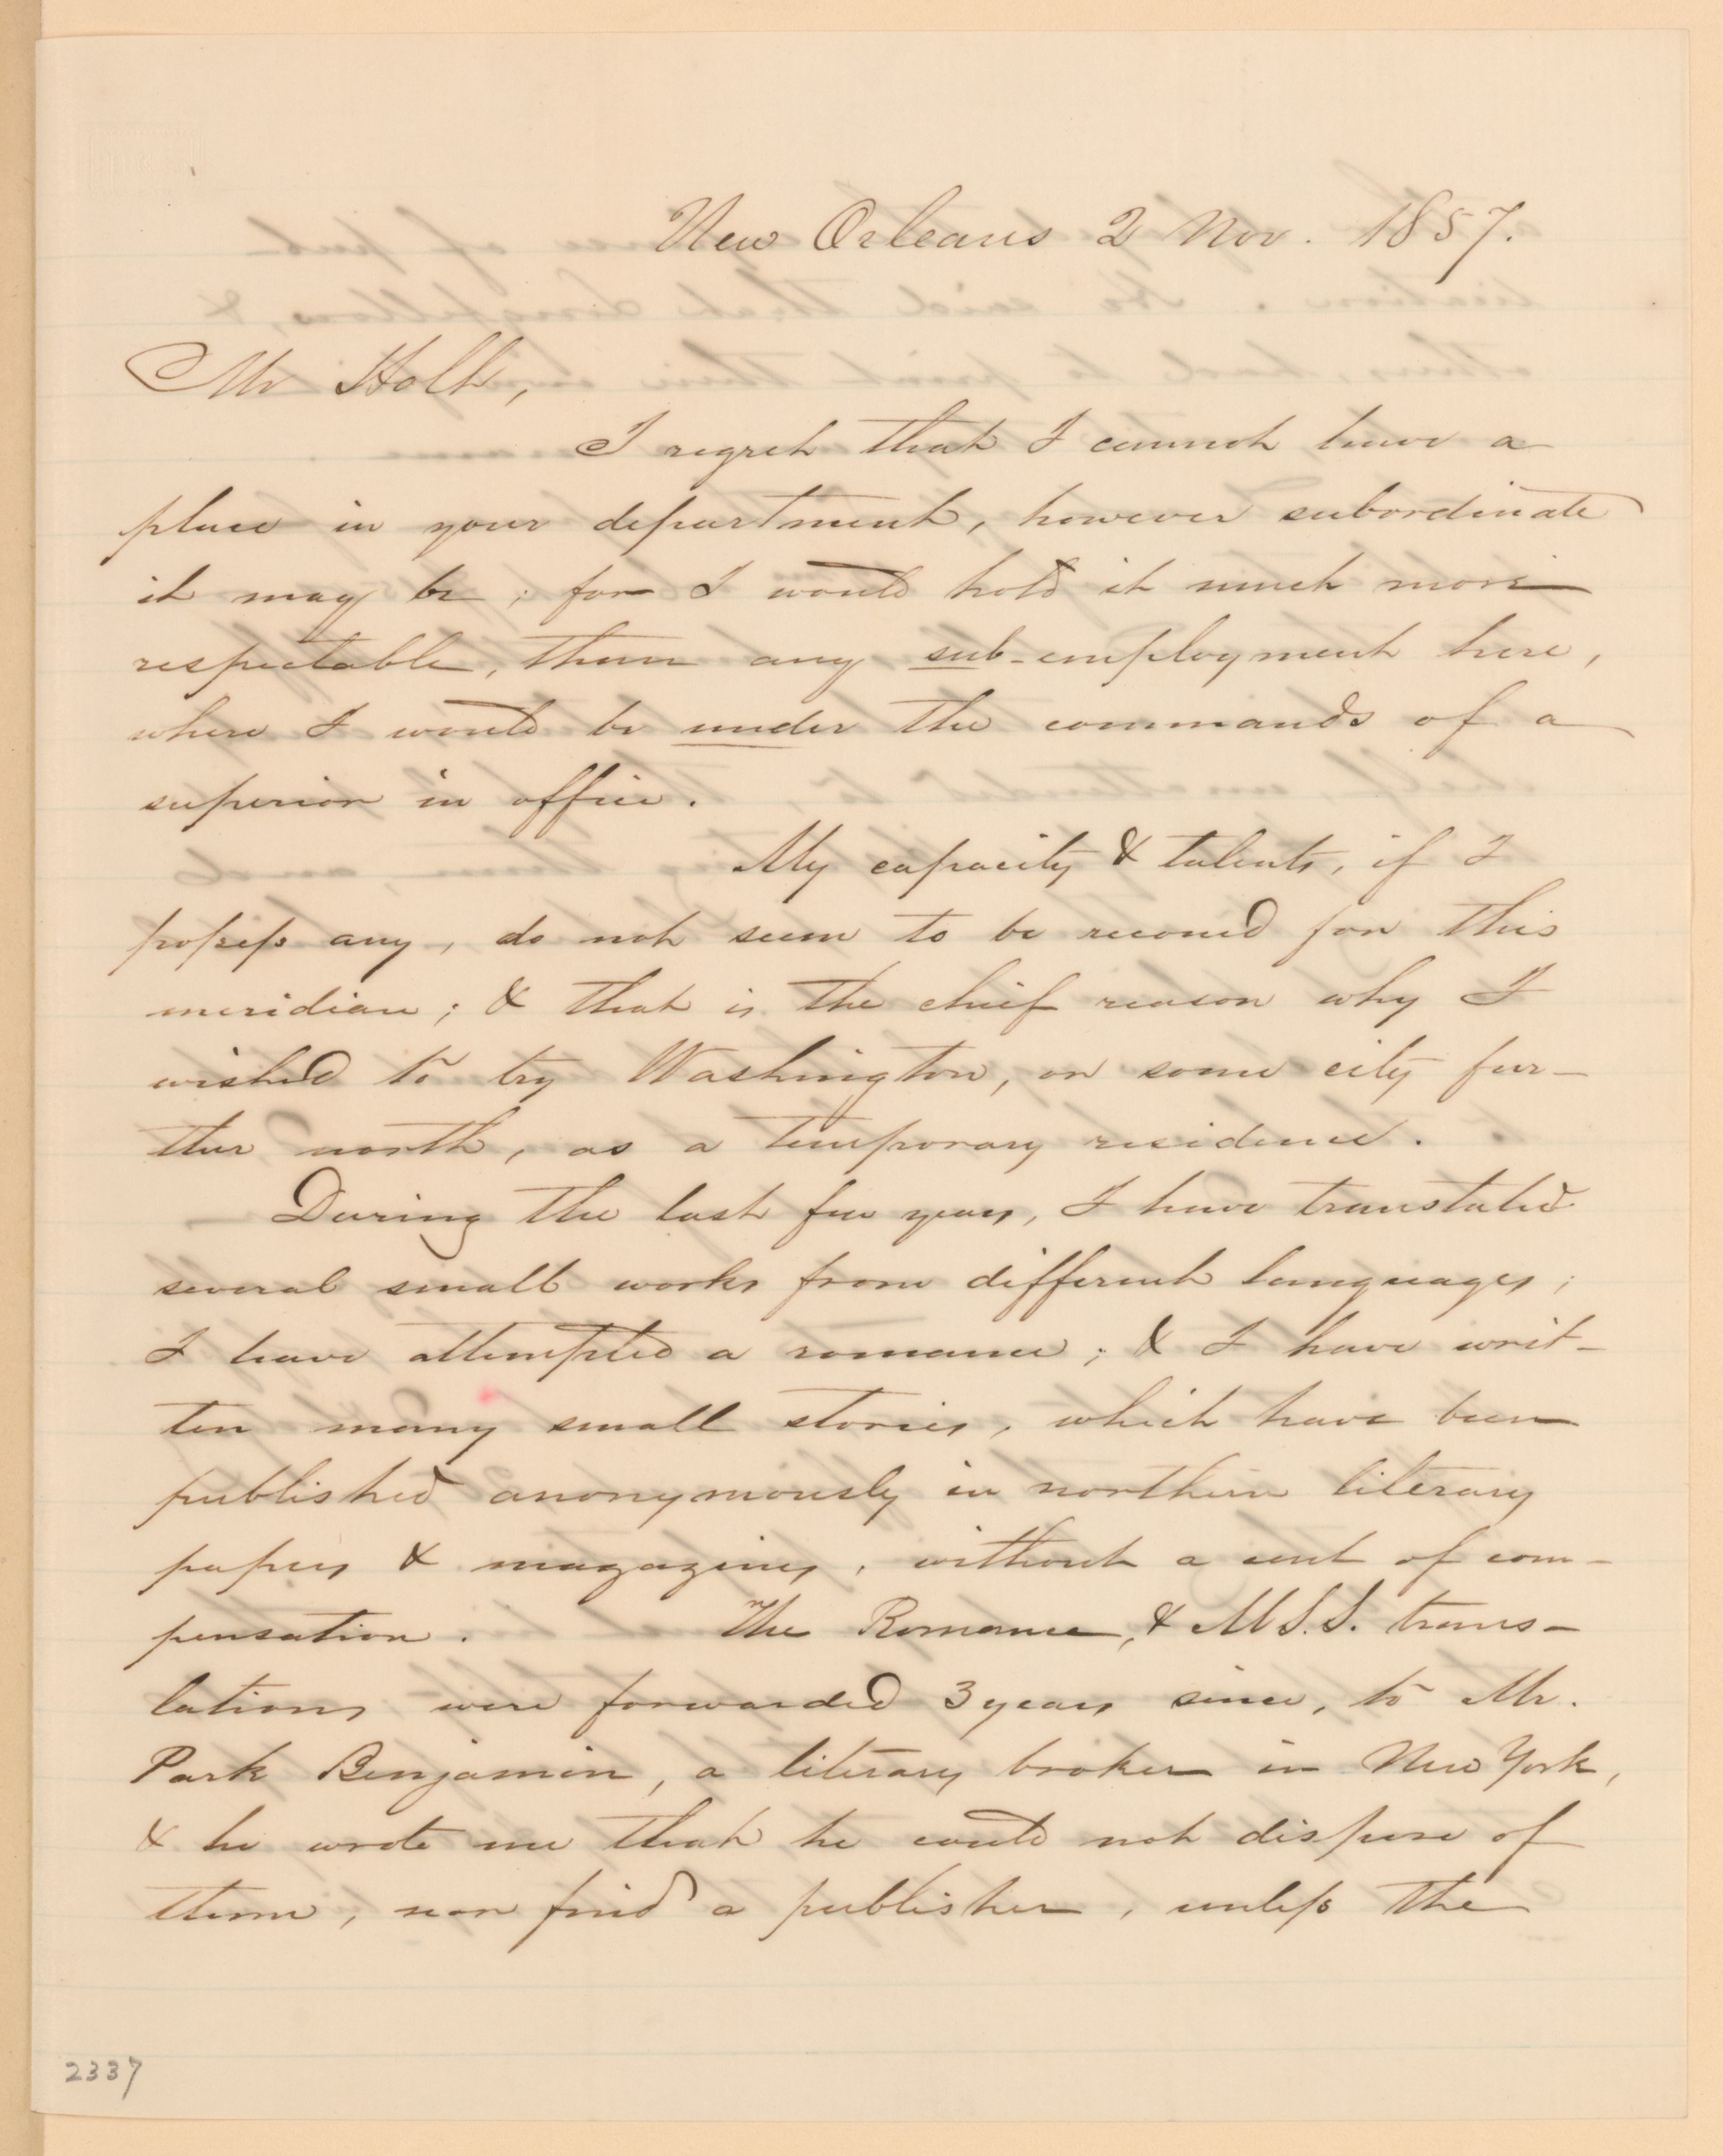 New Orleans 2 Nov. 1857.
Mr Holt,
I regret that I cannot have a
place in your department, however subordinate
it may be; for I would hold it much more
respectable, than any sub-employment here,
where I would be under the commands of a
superior in office.
My capacity & talents, if I
possess any, do not seem to be for this
meridian; & that is the chief reason why I
wished to try Washington, or some city fur-
ther north, as a temporary residence.
During the last few years, I have translated
several small works from different languages;
I have attempted a romance; & I have writ-
ten many small stories, which have been
published anonymously in northern literary
papers & magazines, without a cent of com-
pensation. The Romance, & M.S.S. trans-
lations were forwarded 3 years since, to Mr.
Park Benjamin, a literary broker in New York,
& he wrote me that he could not dispose of
them, nor find a publisher, unless the
2337